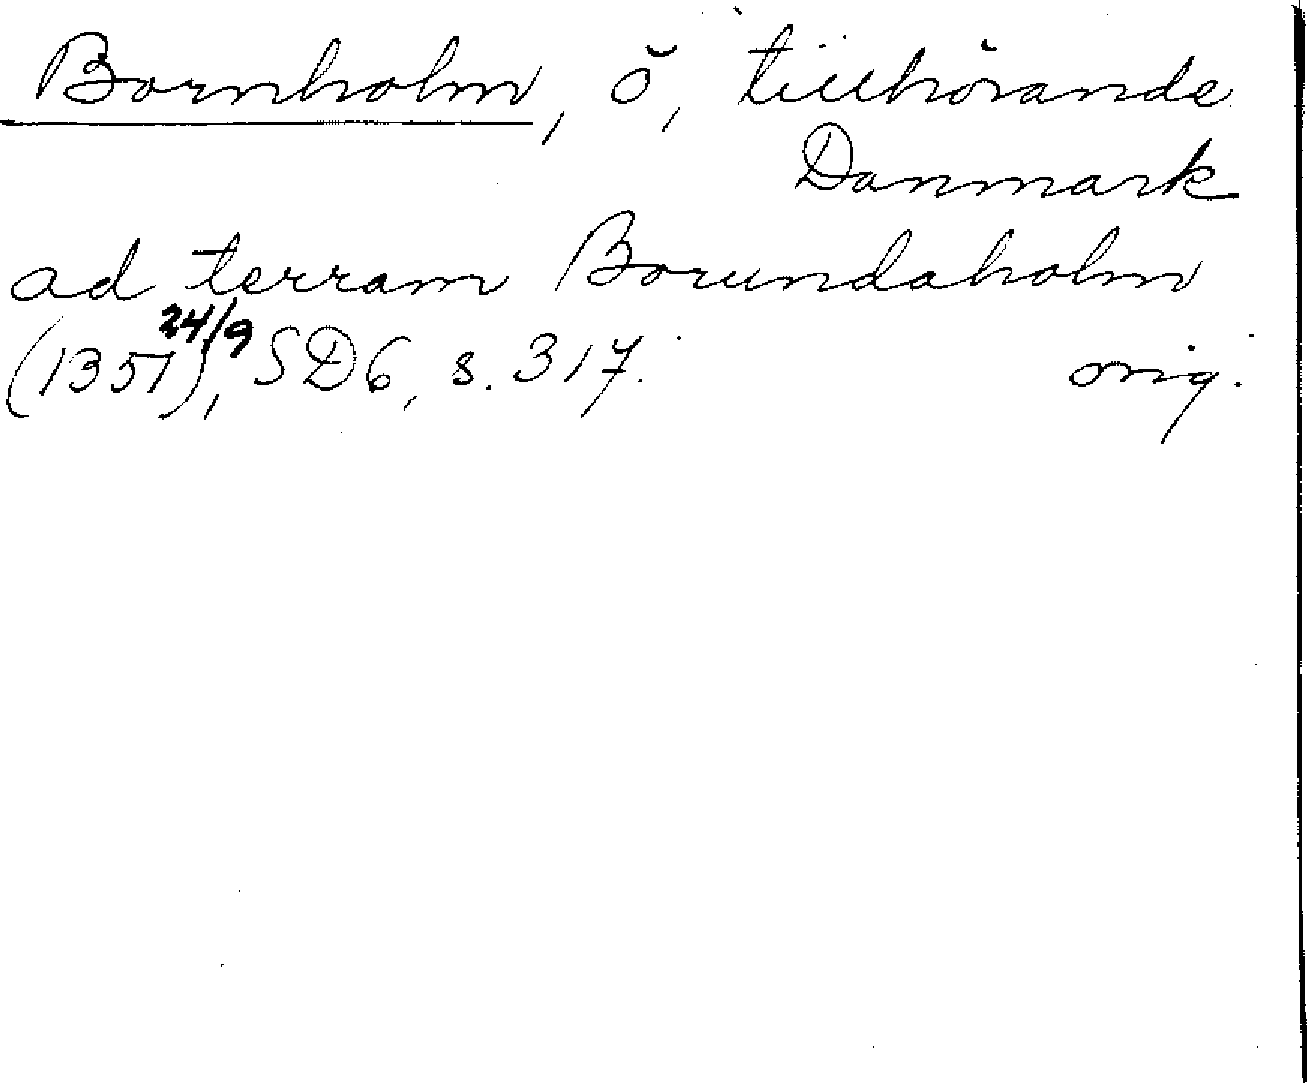 Bornholm, ö, tillhörande
Danmark
ad terram Borundaholm
(1351) 24/9, SD6, s. 317. orig.